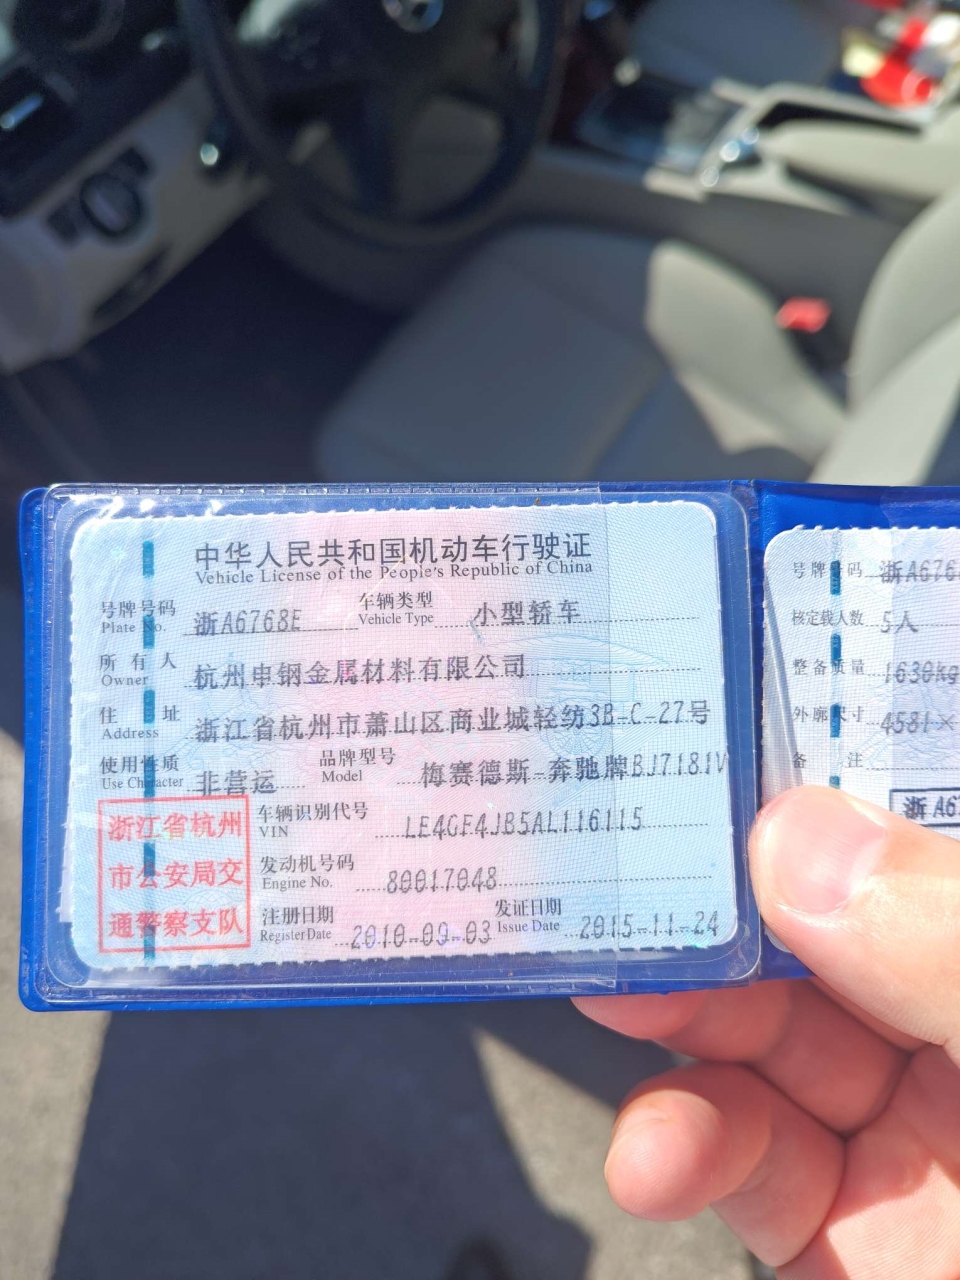 中华人民共和国机动车行驶证
Vehicle License of the People's Republic of China
号牌号码 浙A6768E 车辆类型 小型轿车
Plate No. Vehicle Type
所有人 杭州申钢金属材料有限公司
Owner
住址 浙江省杭州市萧山区商业城轻纺3B-C-27号
Address
使用性质 非营运 品牌型号 梅赛德斯-奔驰牌BJ7181V
Use Character Model
浙江省杭州
市公安局交
通警察支队
车辆识别代号 LE4GF4JB5AL116115
VIN
发动机号码 80017048
Engine No.
注册日期 2010-09-03 发证日期 2015-11-24
Register Date Issue Date
号牌号码 浙A676
核定载人数 5人
整备质量 1630kg
外廓尺寸 4581×
备注
浙A67